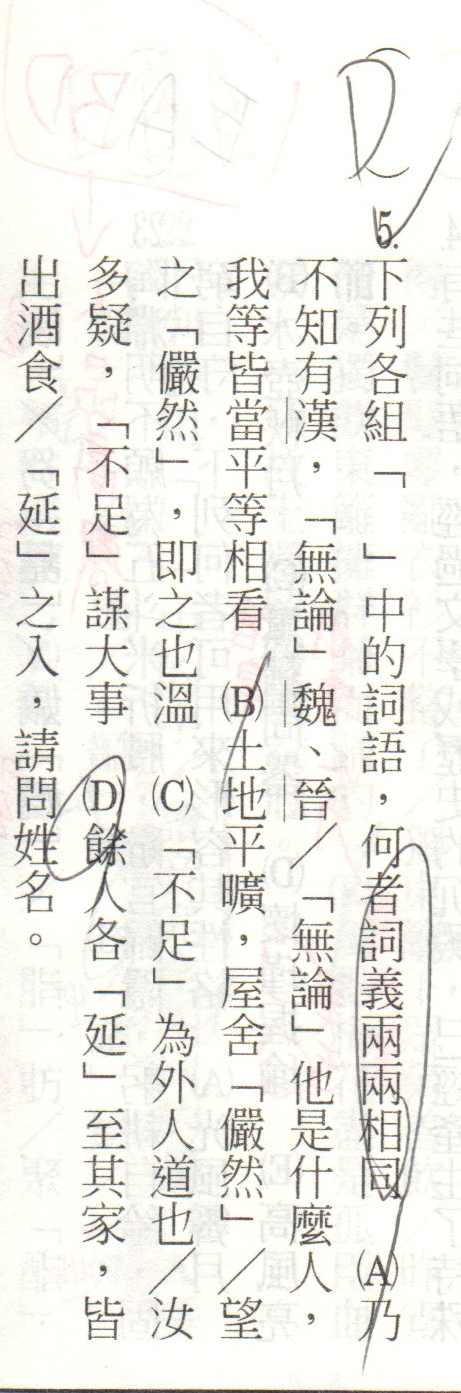 D
5.下列各組「 」中的詞語，何者詞義兩兩相同 (A)乃
不知有漢，「無論」魏、晉／「無論」他是什麼人，
我等皆當平等相看 (B)土地平曠，屋舍「儼然」／望
之「儼然」，即之也溫 (C)「不足」為外人道也／汝
多疑，「不足」謀大事 (D)餘人各「延」至其家，皆
出酒食／「延」之入，請問姓名。